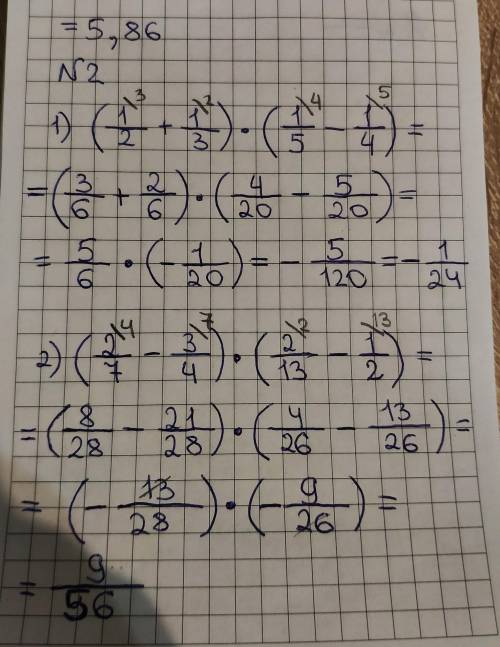 = 5,86
N2
1) (1\3/2 + 1\2/3) · (1\4/5 − 1\5/4) =
= (3/6 + 2/6) · (4/20 − 5/20) =
= 5/6 · (− 1/20) = − 5/120 = − 1/24
2) (2\4/7 − 3\7/4) · (2\2/13 − 1\13/2) =
= (8/28 − 21/28) · (4/26 − 13/26) =
= (− 13/28) · (− 9/26) =
= 9/56